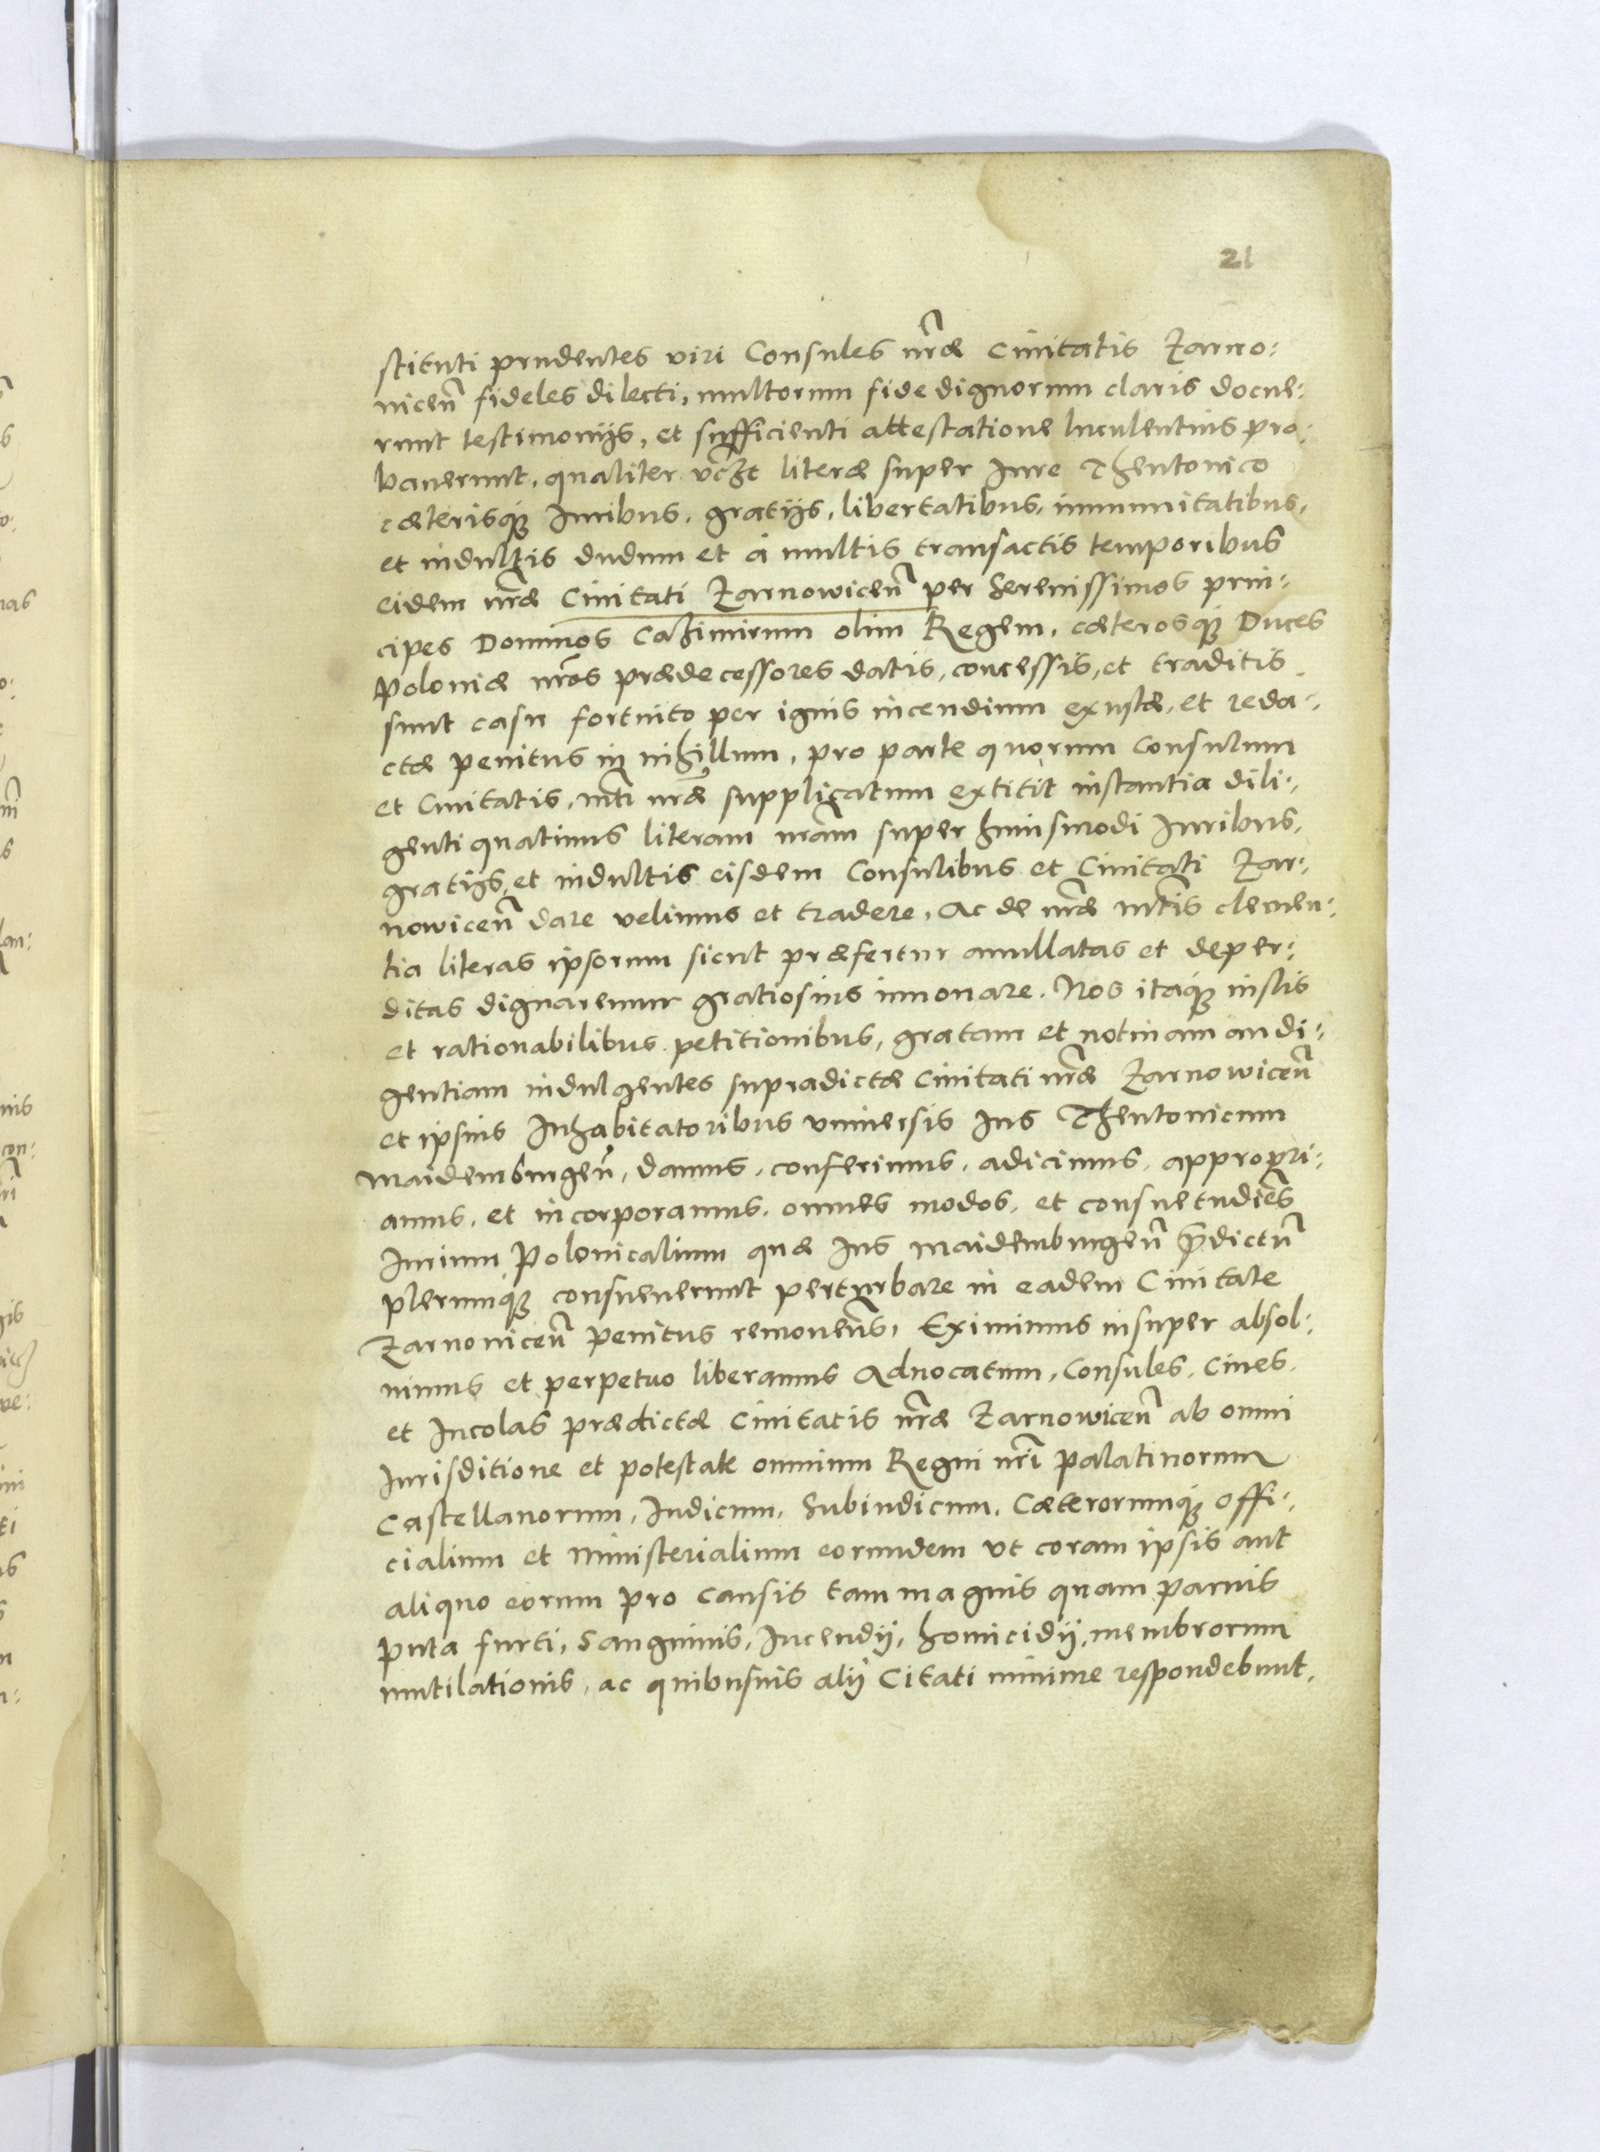 21
stituti prudentes viri Consules nr̃æ Ciuitatis Żarno:
uiceñ fideles dilecti, multorum fide dignorum claris docue:
runt testimonijs, et sufficienti attestatione luculentius pro:
bauerunt, qualiter vc̃zt literæ super Iure Theutonico
cæterisq́ Iuribus, gratijs, libertatibus, immunitatibus,
et indultis dudum et à multis transactis temporibus
eidem nr̃æ Ciuitati Żarnowiceñ per Serenissimos prin:
cipes Dominos Cazimirum olim Regem, cæterosq́ Duces
Poloniæ nr̃os prædecessores datis, concessis, et traditis
sunt casu fortuito per ignis incendium exustæ, et reda:
ctæ penitus in nihillum, pro parte quorum Consulum
et Ciuitatis, mti nr̃æ supplicatum extitit instantia dili:
genti quatinus literam nr̃am super huiusmodi Iuribus,
gratijs, et indultis eisdem Consulibus et Ciuitati Żar:
nowiceñ dare velimus et tradere, Ac de nr̃æ mt̃is clemen:
tia literas ipsorum sicut præfertur anullatas et deper:
ditas dignaremur gratiosius innouare. Nos itaq́ iustis
et rationabilibus petitionibus, gratam et notiuam audi:
gentiam indulgentes supradictæ Ciuitati nr̃æ Żarnowiceñ
et ipsius Inhabitatoribus vniuersis Ius Theutonicum
Maidemburgeñ, damus, conferimus, adicimus, appropri:
amus, et incorporamus, omnes modos, et consuetudiẽs
Iurium Polonicalium quæ Ius Maidemburgeñ p̃dictũ
plerumq́ consueuerunt perturbare in eadem Ciuitate
Żarnouiceñ penitus remouẽns, Eximimus insuper absol:
uimus et perpetuo liberamus Aduocatum, Consules, Ciues
et Incolas prædictæ Ciuitatis nr̃æ Żarnowiceñ ab omni
Iurisditione et potestate omnium Regni nr̃i Palatinorum
Castellanorum, Iudicum, Subiudicum, Cæterorumq́ offi:
cialium et Ministerialium eorundem vt coram ipsis aut
aliquo eorum pro causis tam magnis quam paruis
puta furti, Sanguinis, Incendij, homicidij, membrorum
mutilationis, ac quibusuis alij Citati minime respondebunt.